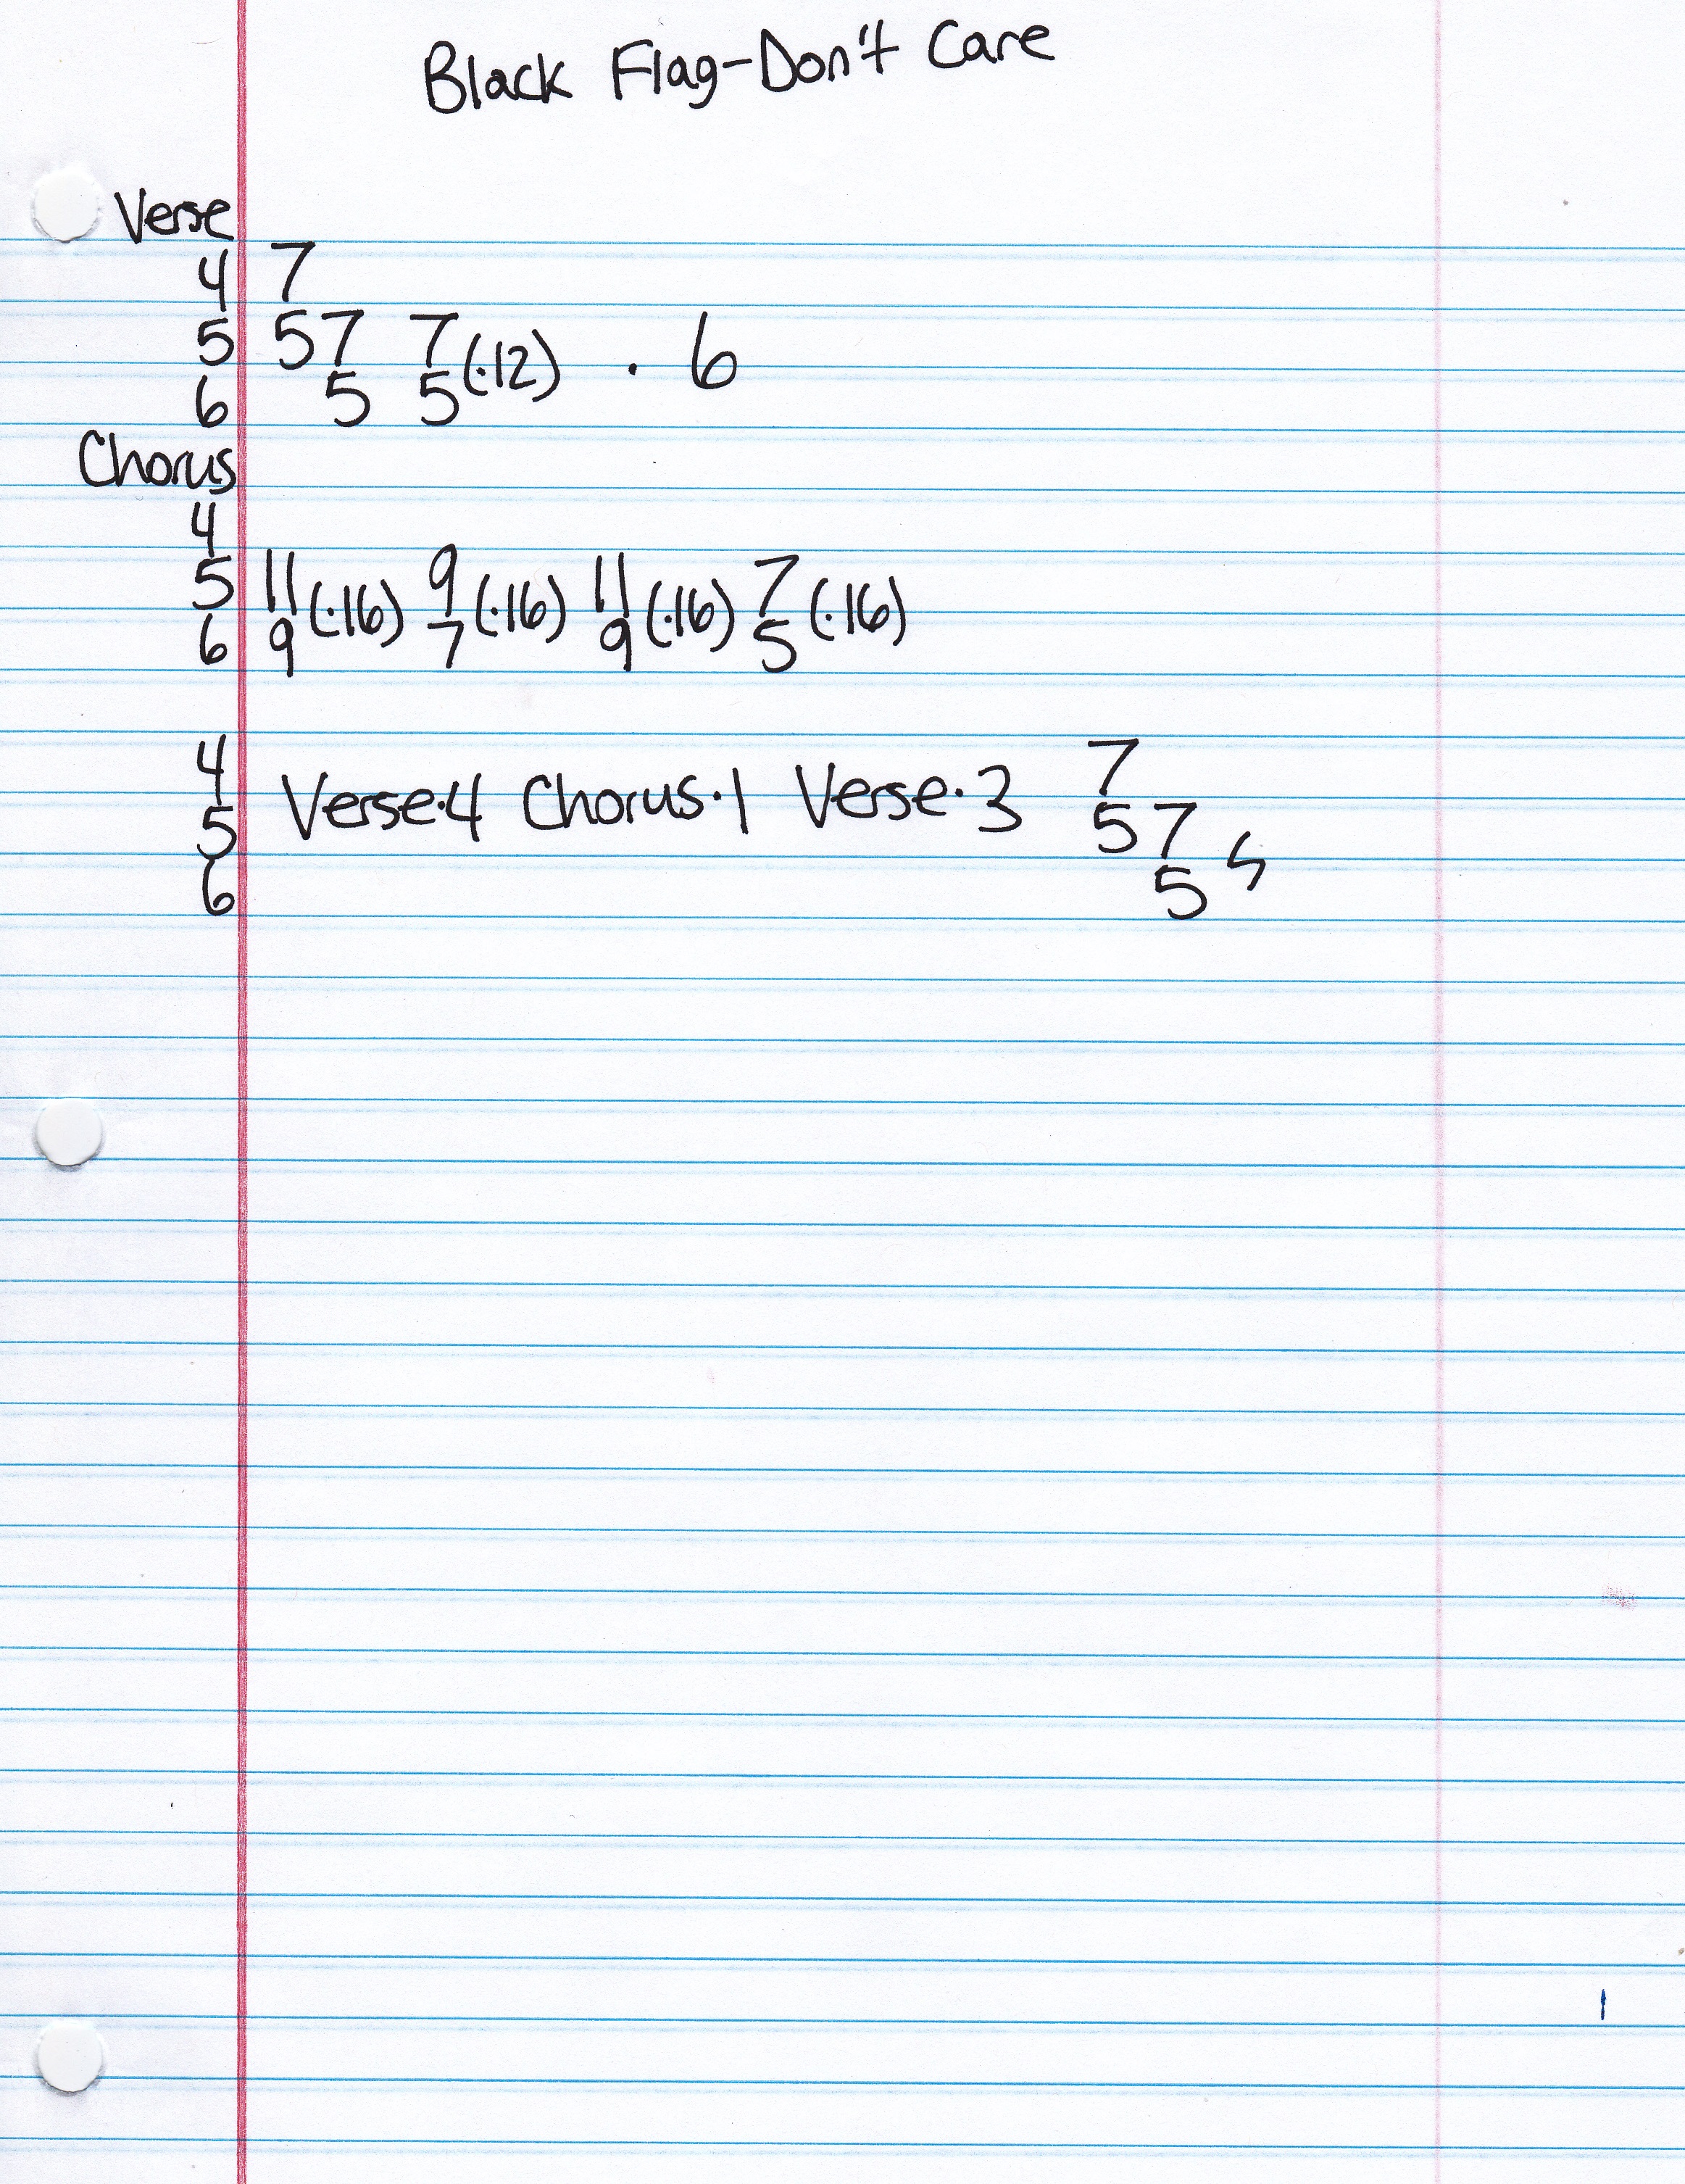 Black Flag-Don't Care
Verse
4 7
5 57 7(·12) · 6
6 5 5
Chorus
4
5 11(·16) 9(·16) 11(·16) 7(·16)
6 9 7 9 5
4 7
5 Verse·4 Chorus·1 Verse·3 57
6 5
1